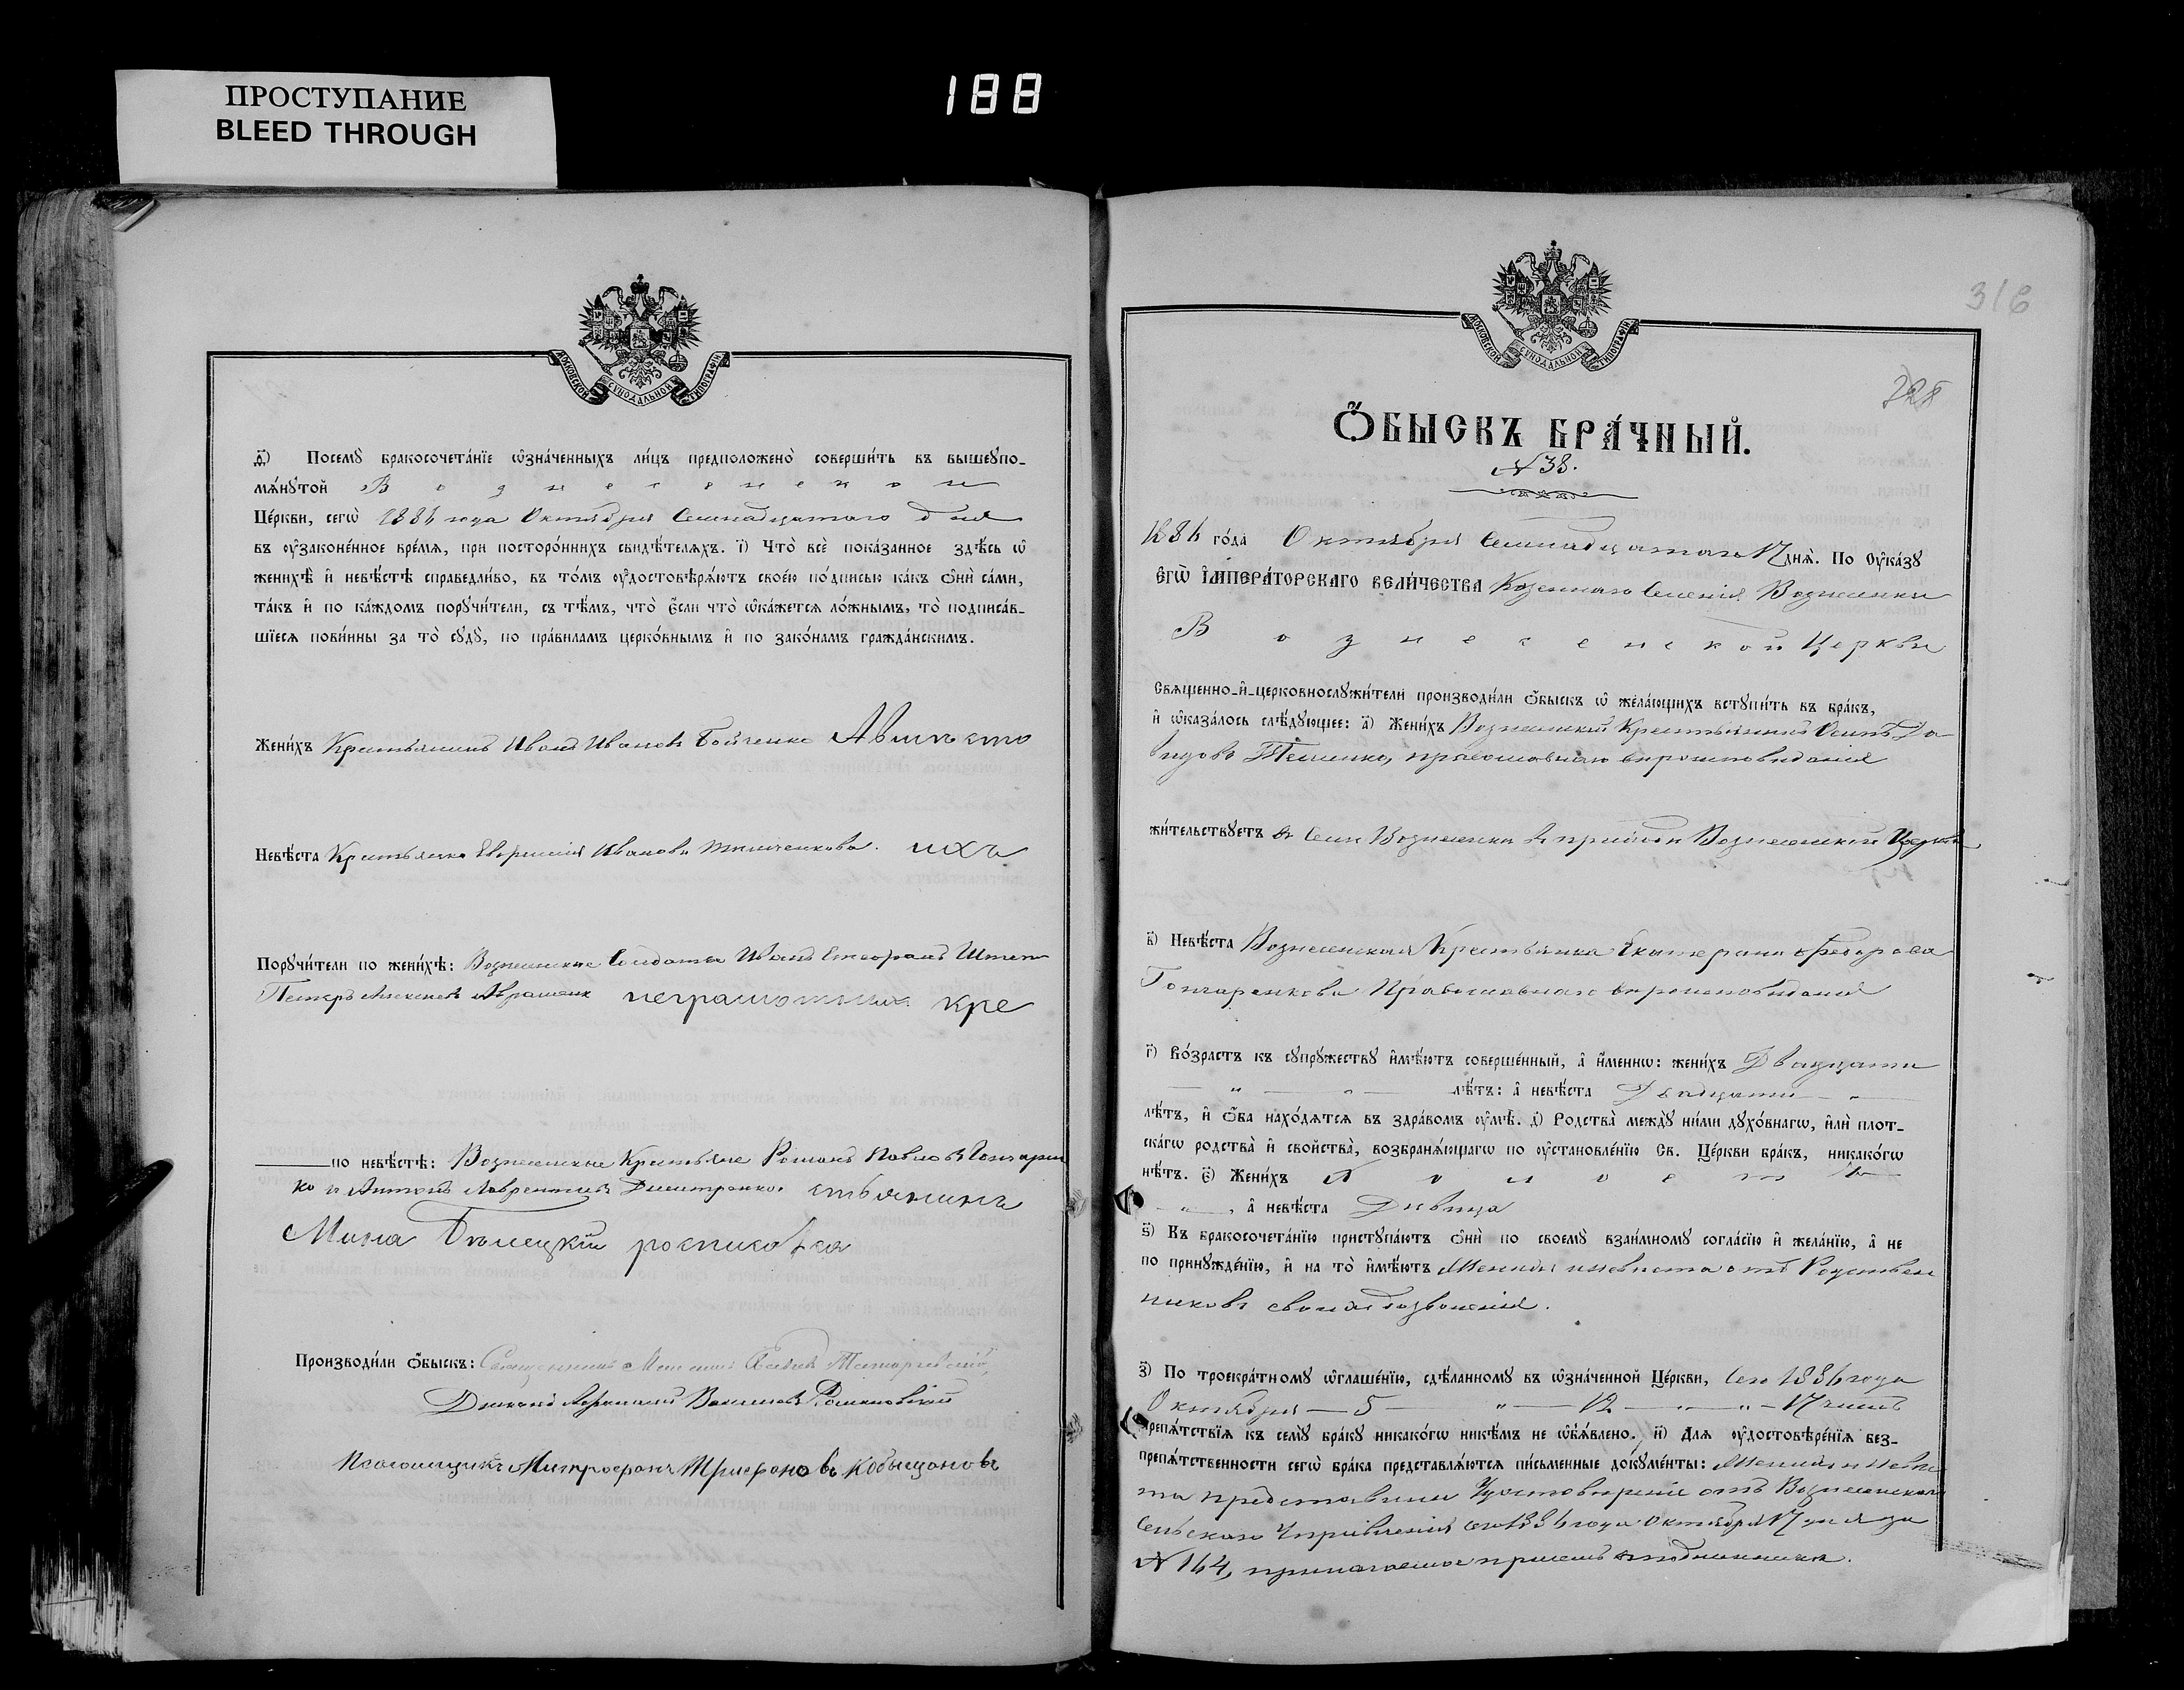 ПРОСТУПАНИЕ
BLEED THROUGH
188
МОСКОВСКОЙ СѴНОДАЛЬНОЙ ТИПОГРАФІИ
д҃і) Посемꙋ бракосочета́нїе ѡзна́ченныхъ ли́цъ предположено̀ соверши́ть въ вышеꙋпо-
мѧ́нꙋтой Вознесенской
Це́ркви, сегѡ̀ 1886 года Октября Семнадцатого дня
въ ᲂу҆законе́нное вре́мѧ, при посторо́ннихъ свидѣ́телѧхъ. і҃) Что̀ всѐ пока́занное здѣ́сь ѡ҆
женихѣ̀ и҆ невѣ́стѣ справедли́во, въ то́мъ ᲂу҆достовѣрѧ́ютъ свое́ю по́дписью ка́къ ѻ҆нѝ са́ми,
та́къ и҆ по ка́ждомъ порꙋчи́тели, съ тѣ́мъ, что̀ є҆́сли что̀ ѡ҆ка́жетсѧ ло́жнымъ, то̀ подписа́в-
шїесѧ пови́нны за то̀ сꙋдꙋ̀, по пра́виламъ церко́внымъ и҆ по зако́намъ гражда́нскимъ.
Жени́хъ Крестьянинъ Иванъ Ивановъ Бойченко А вместо
Невѣ́ста Крестьянка Евфимія Иванова ихъ
Порꙋчи́тели по женихѣ̀: Вознесенские Солдаты Иванъ
Петръ неграмотныхъ кре
по невѣ́стѣ: Вознесенские Крестьяне Романъ Павловъ Гончарен
ко и Антонъ Лаврентиевъ Дмитренко. стьянинъ
Мина Белецкий росписовся
Производи́ли ѻ҆́быскъ: Священникъ
Диаконъ Василиевъ Романовский
Псаломщикъ Митрофанъ Трифоновъ Кобыщановъ
316
МОСКОВСКОЙ СѴНОДАЛЬНОЙ ТИПОГРАФІИ
228
Ѻ҆́БЫСКЪ БРА́ЧНЫЙ.
N 38.
1886 го́да Октября Семнадцатаго 17 днѧ̀. По Оу҆ка́зꙋ
Е҆гѡ̀ І҆мпера́торскагѡ Вели́чества Казеннаго Селения Вознесенки
Вознесенской Церкви
Свѧщенно-и҆-церковнослꙋжи́тели производи́ли ѻ҆́быскъ ѡ҆ жела́ющихъ встꙋпи́ть въ бра́къ,
и҆ ѡ҆каза́лось слѣ́дꙋющее: а҃) Жени́хъ Вознесенский Крестьянинъ Осипъ Да-
видовъ православнаго вероисповедания
жи́тельствꙋетъ в Селе Вознесенки в приходе Вознесенской Церкви
в҃) Невѣ́ста Вознесенская Крестьянка Екатерина Федорова
Гончаренкова Православнаго вероисповедания
г҃) Во́зрастъ къ сꙋпрꙋ́жествꙋ и҆мѣ́ютъ соверше́нный, а҆ и҆́меннѡ: жени́хъ Двадцати
лѣ́тъ: а҆ невѣ́ста Двадцати
лѣ́тъ, и҆ ѻ҆́ба нахо́дѧтсѧ въ здра́вомъ ᲂу҆мѣ̀. д҃) Родства̀ междꙋ̀ ни́ми дꙋхо́внагѡ, и҆лѝ плот-
ска́гѡ родства̀ и҆ свойства̀, возбранѧ́ющагѡ по ᲂу҆становле́нїю Св. Це́ркви бра́къ, никако́гѡ
нѣ́тъ. є҃) Жени́хъ Холостъ
, а҆ невѣ́ста Девица
ѕ҃) Къ бракосочета́нїю пристꙋпа́ютъ ѻ҆нѝ по своемꙋ̀ взаи́мномꙋ согла́сїю и҆ жела́нїю, а҆ не
по принꙋжде́нїю, и҆ на то̀ и҆мѣ́ютъ Жених и невеста отъ Родствен
никовъ своихъ дозволения.
з҃) По троекра́тномꙋ ѡ҆глаше́нїю, сдѣ́ланномꙋ въ ѡ҆зна́ченной Це́ркви, Сего 1886 года
Октября — 5 — „ — 12 — „ — 17 числъ
препѧ́тствїѧ къ семꙋ̀ бра́кꙋ никако́гѡ никѣ́мъ не ѡ҆б̾ѧ́влено. и҃) Длѧ ᲂу҆достовѣре́нїѧ без-
препѧ́тственности сегѡ̀ бра́ка представлѧ́ютсѧ пи́сьменные докꙋме́нты: Жених и Неве
ста представили Удостоверение отъ Вознесенскаго
Сельскаго Управления сего 1886 года Октября 17 дня за
N 164, прилагаемое при семъ в подлиннике.